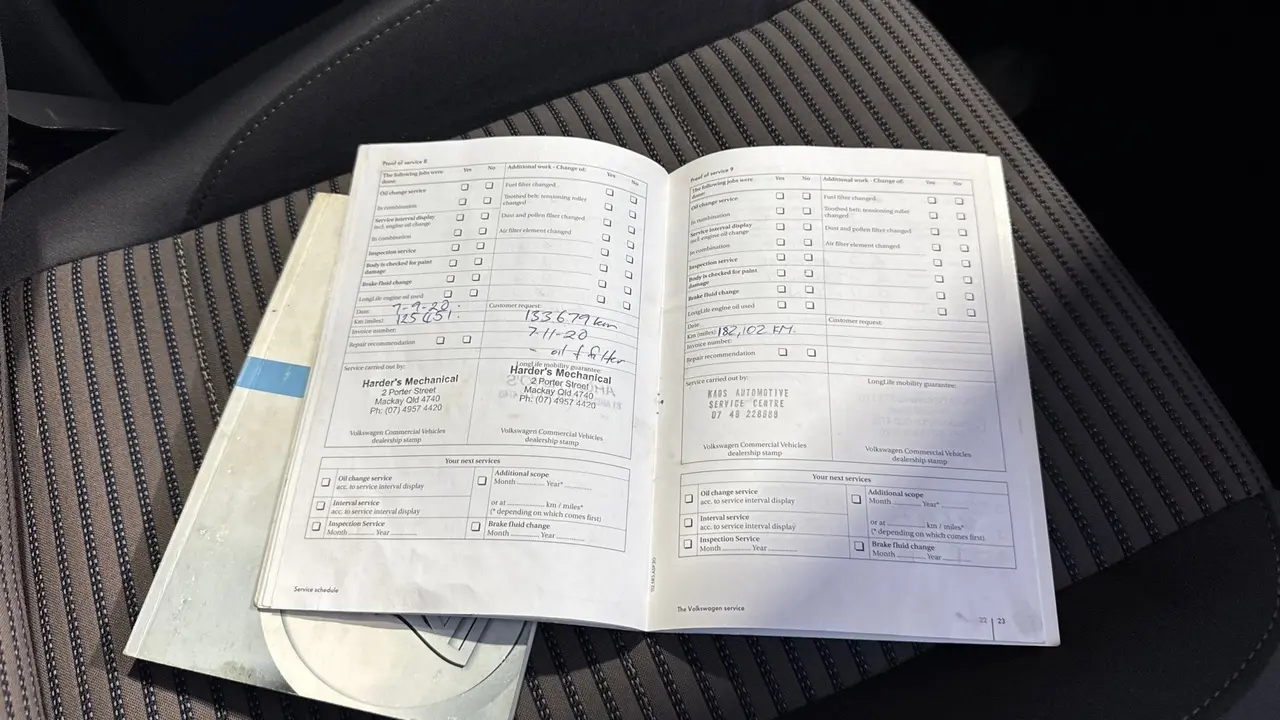 Proof of service 8
The following jobs were done: Yes No Additional work - Change of: Yes No
Oil change service Fuel filter changed
In combination Toothed belt; tensioning roller changed
Service interval display incl. engine oil change Dust and pollen filter changed
In combination Air filter element changed
Inspection service
Body is checked for paint damage
Brake fluid change
LongLife engine oil used
Date: 7-9-20 Customer request: 133679 km
Km (miles): 7-11-20
Invoice number: - oil & filter
Repair recommendation
Service carried out by: LongLife mobility guarantee:
Harder's Mechanical Harder's Mechanical
2 Porter Street 2 Porter Street
Mackay Qld 4740 Mackay Qld 4740
Ph: (07) 4957 4420 Ph: (07) 4957 4420
Volkswagen Commercial Vehicles Volkswagen Commercial Vehicles
dealership stamp dealership stamp
Your next services
Oil change service Additional scope
acc. to service interval display Month Year*
Interval service or at km / miles*
acc. to service interval display (* depending on which comes first)
Inspection Service Brake fluid change
Month Year Month Year
Service schedule
Proof of service 9
The following jobs were done: Yes No Additional work - Change of: Yes No
Oil change service Fuel filter changed
In combination Toothed belt; tensioning roller changed
Service interval display incl. engine oil change Dust and pollen filter changed
In combination Air filter element changed
Inspection service
Body is checked for paint damage
Brake fluid change
LongLife engine oil used
Date: Customer request:
Km (miles): 182,102 KM.
Invoice number:
Repair recommendation
Service carried out by: LongLife mobility guarantee:
KAOS AUTOMOTIVE
SERVICE CENTRE
07 49 228888
Volkswagen Commercial Vehicles Volkswagen Commercial Vehicles
dealership stamp dealership stamp
Your next services
Oil change service Additional scope
acc. to service interval display Month Year*
Interval service or at km / miles*
acc. to service interval display (* depending on which comes first)
Inspection Service Brake fluid change
Month Year Month Year
The Volkswagen service
22 | 23